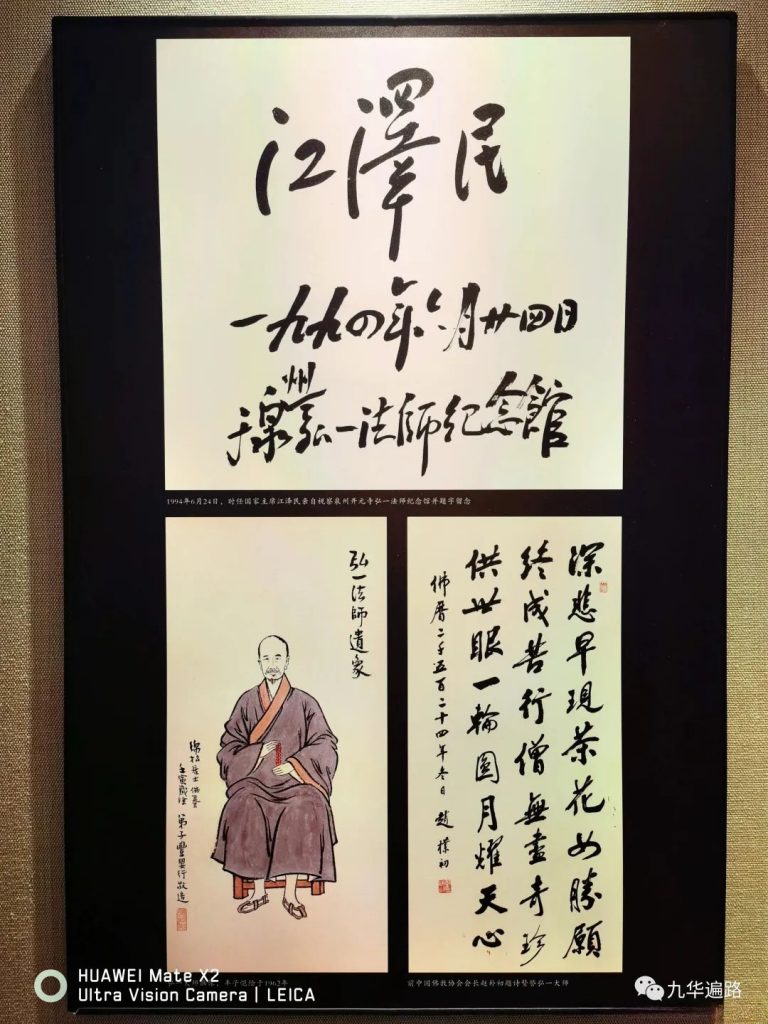 江澤民
一九九四年六月廿四日
于泉州弘一法師纪念館
1994年6月24日，时任国家主席江泽民亲自视察泉州开元寺弘一法师纪念馆并题字留念
弘一法師遺象
弟子豐嬰行敬造
丰子恺绘于1962年
深悲早現茶花女勝願
終成苦行僧無盡奇珍
供世眼一輪圓月耀天心
佛曆二千五百二十四年冬日 趙樸初
前中国佛教协会会长赵朴初题诗赞誉弘一大师
HUAWEI Mate X2
Ultra Vision Camera | LEICA
九华遍路